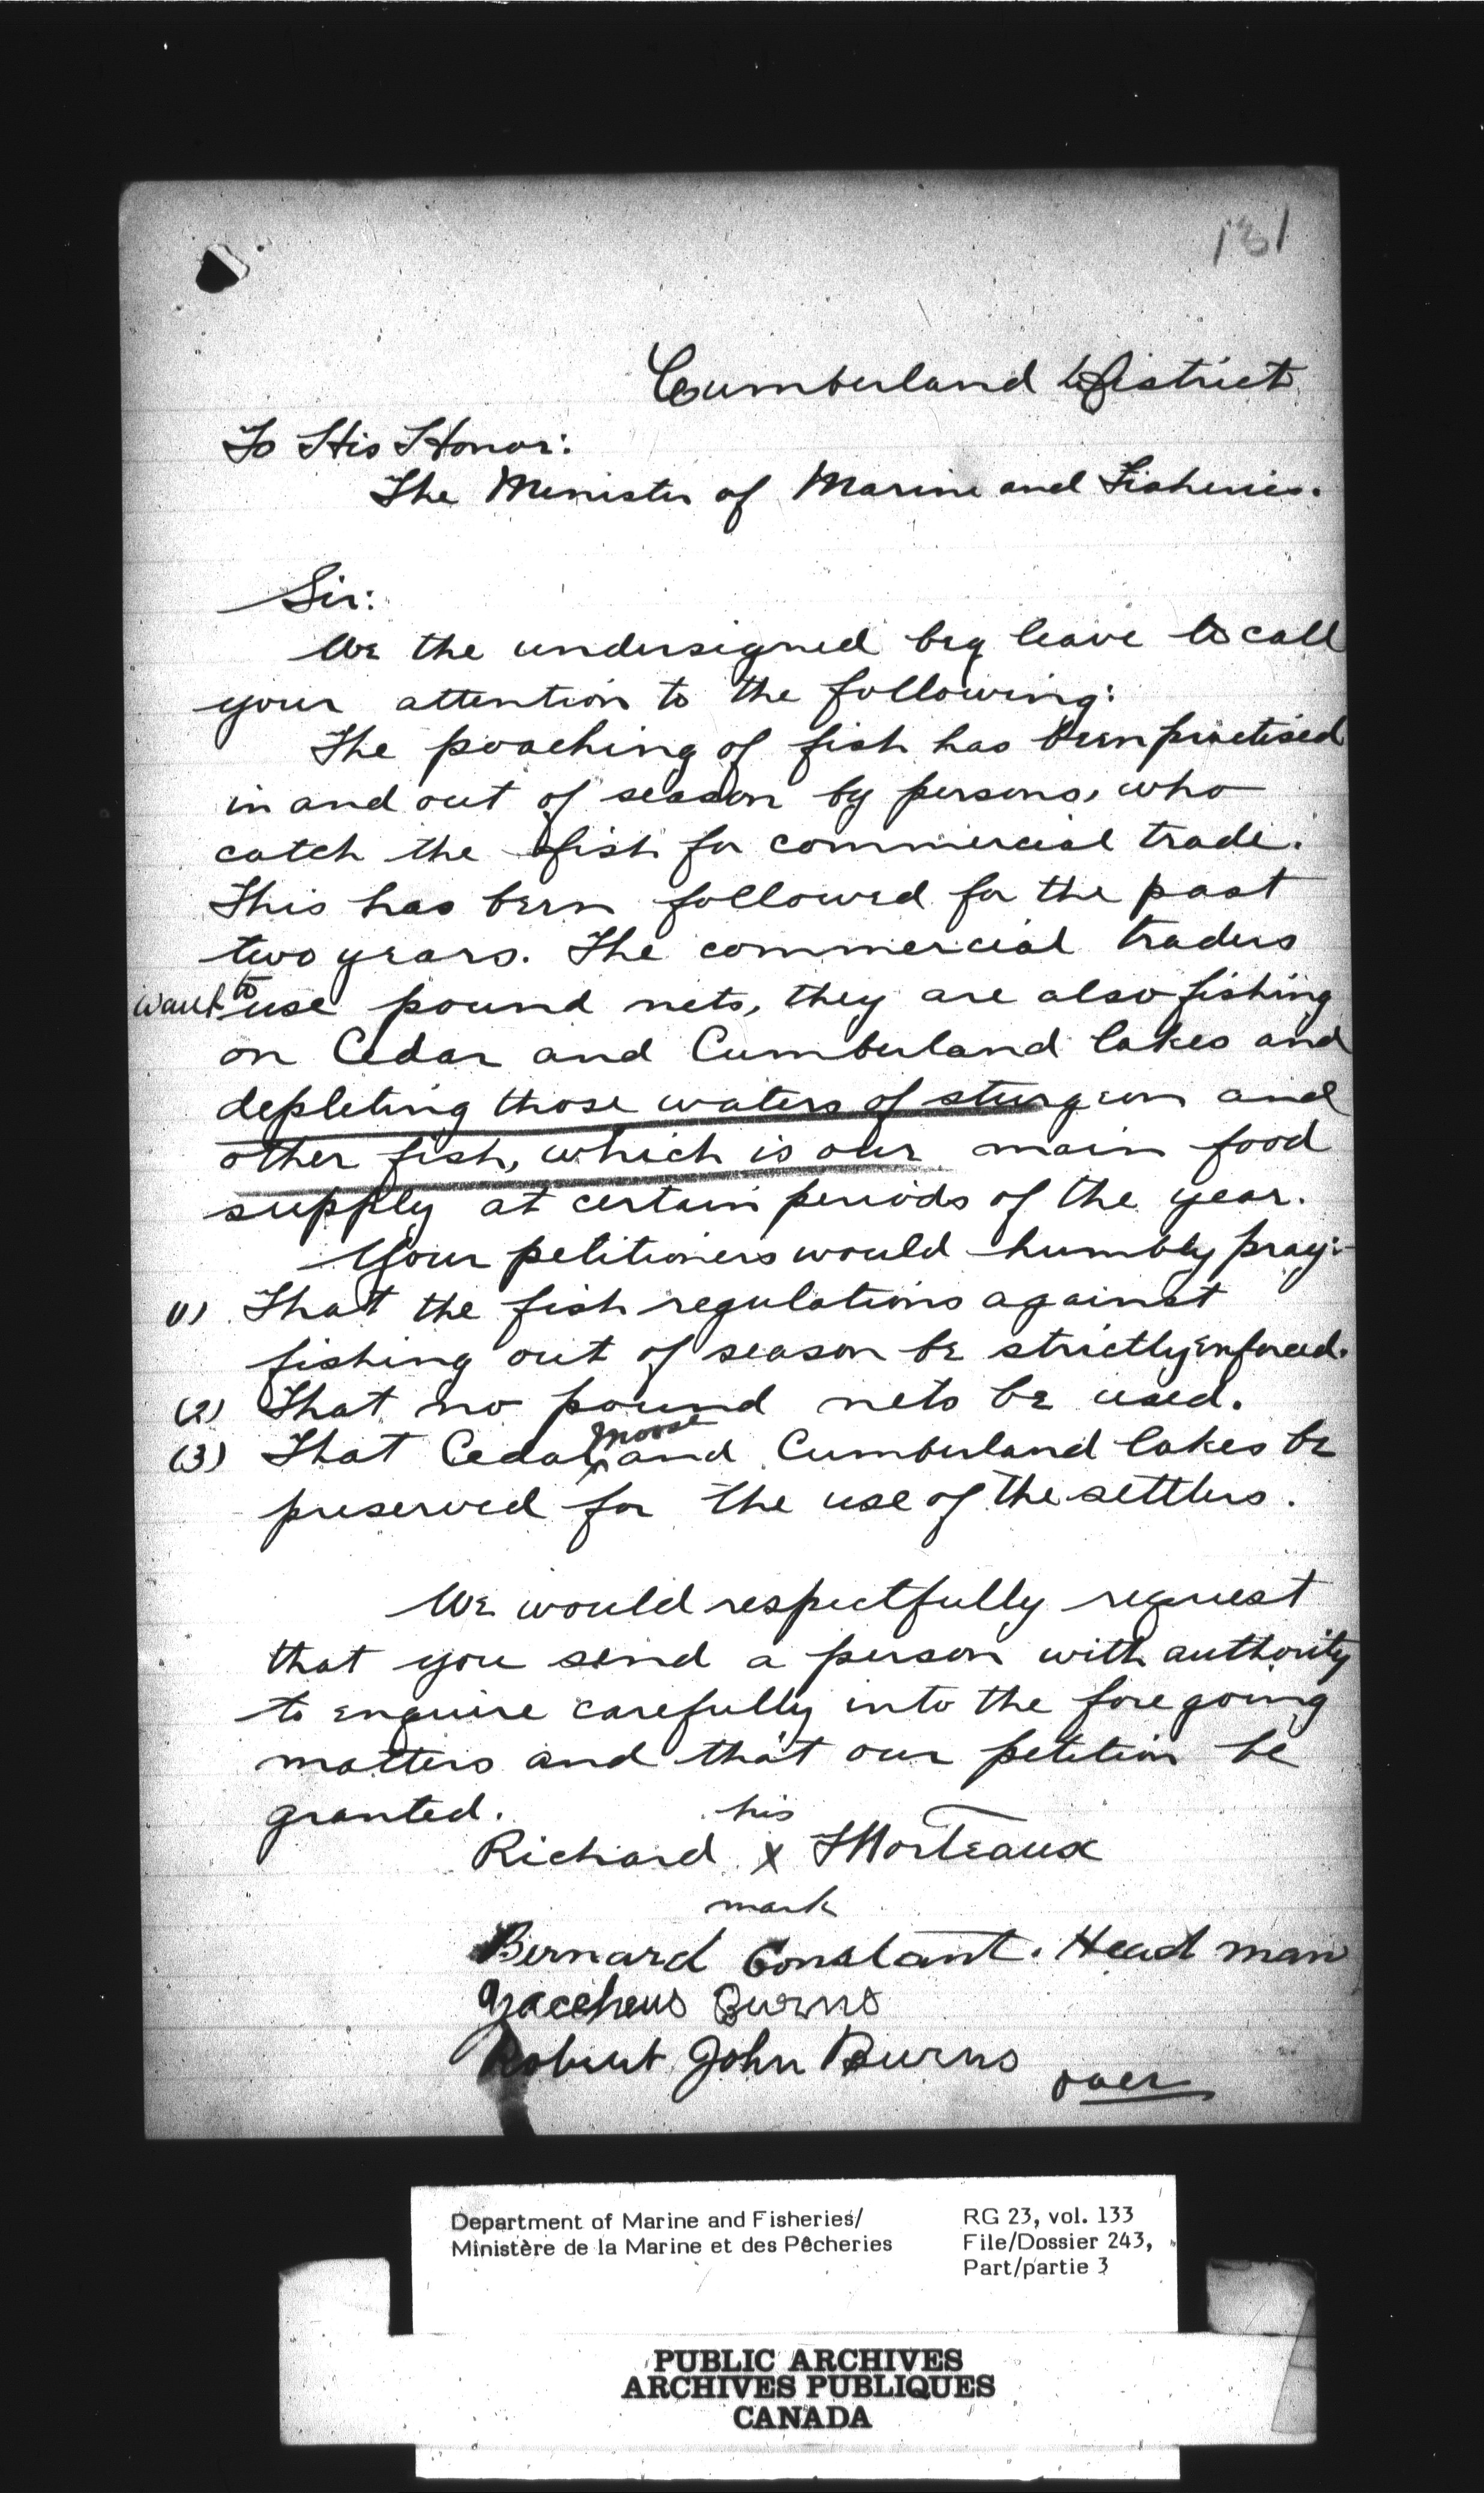 131
Cumberland District
To His Honor:
The Minister of Marine and Fisheries.
Sir:
We the undersigned beg leave to call
your attention to the following:
The poaching of fish has been practised
in and out of season by persons, who
catch the fish for commercial trade.
This has been followed for the past
two years. The commercial traders
want to use pound nets, they are also fishing
on Cedar and Cumberland lakes and
depleting those waters of sturgeon and
other fish, which is our main food
supply at certain periods of the year.
Your petitioners would humbly pray:-
(1) That the fish regulations against
fishing out of season be strictly enforced.
(2) That no pound nets be used.
(3) That Cedar moose and Cumberland lakes be
preserved for the use of the settlers.
We would respectfully request
that you send a person with authority
to enquire carefully into the foregoing
matters and that our petition be
granted.
his
Richard x
mark
Bernard Constant. Head man
Zaccheus Burns
Robert John Burns
over
Department of Marine and Fisheries/
Ministère de la Marine et des Pêcheries
RG 23, vol. 133
File/Dossier 243,
Part/partie 3
PUBLIC ARCHIVES
ARCHIVES PUBLIQUES
CANADA